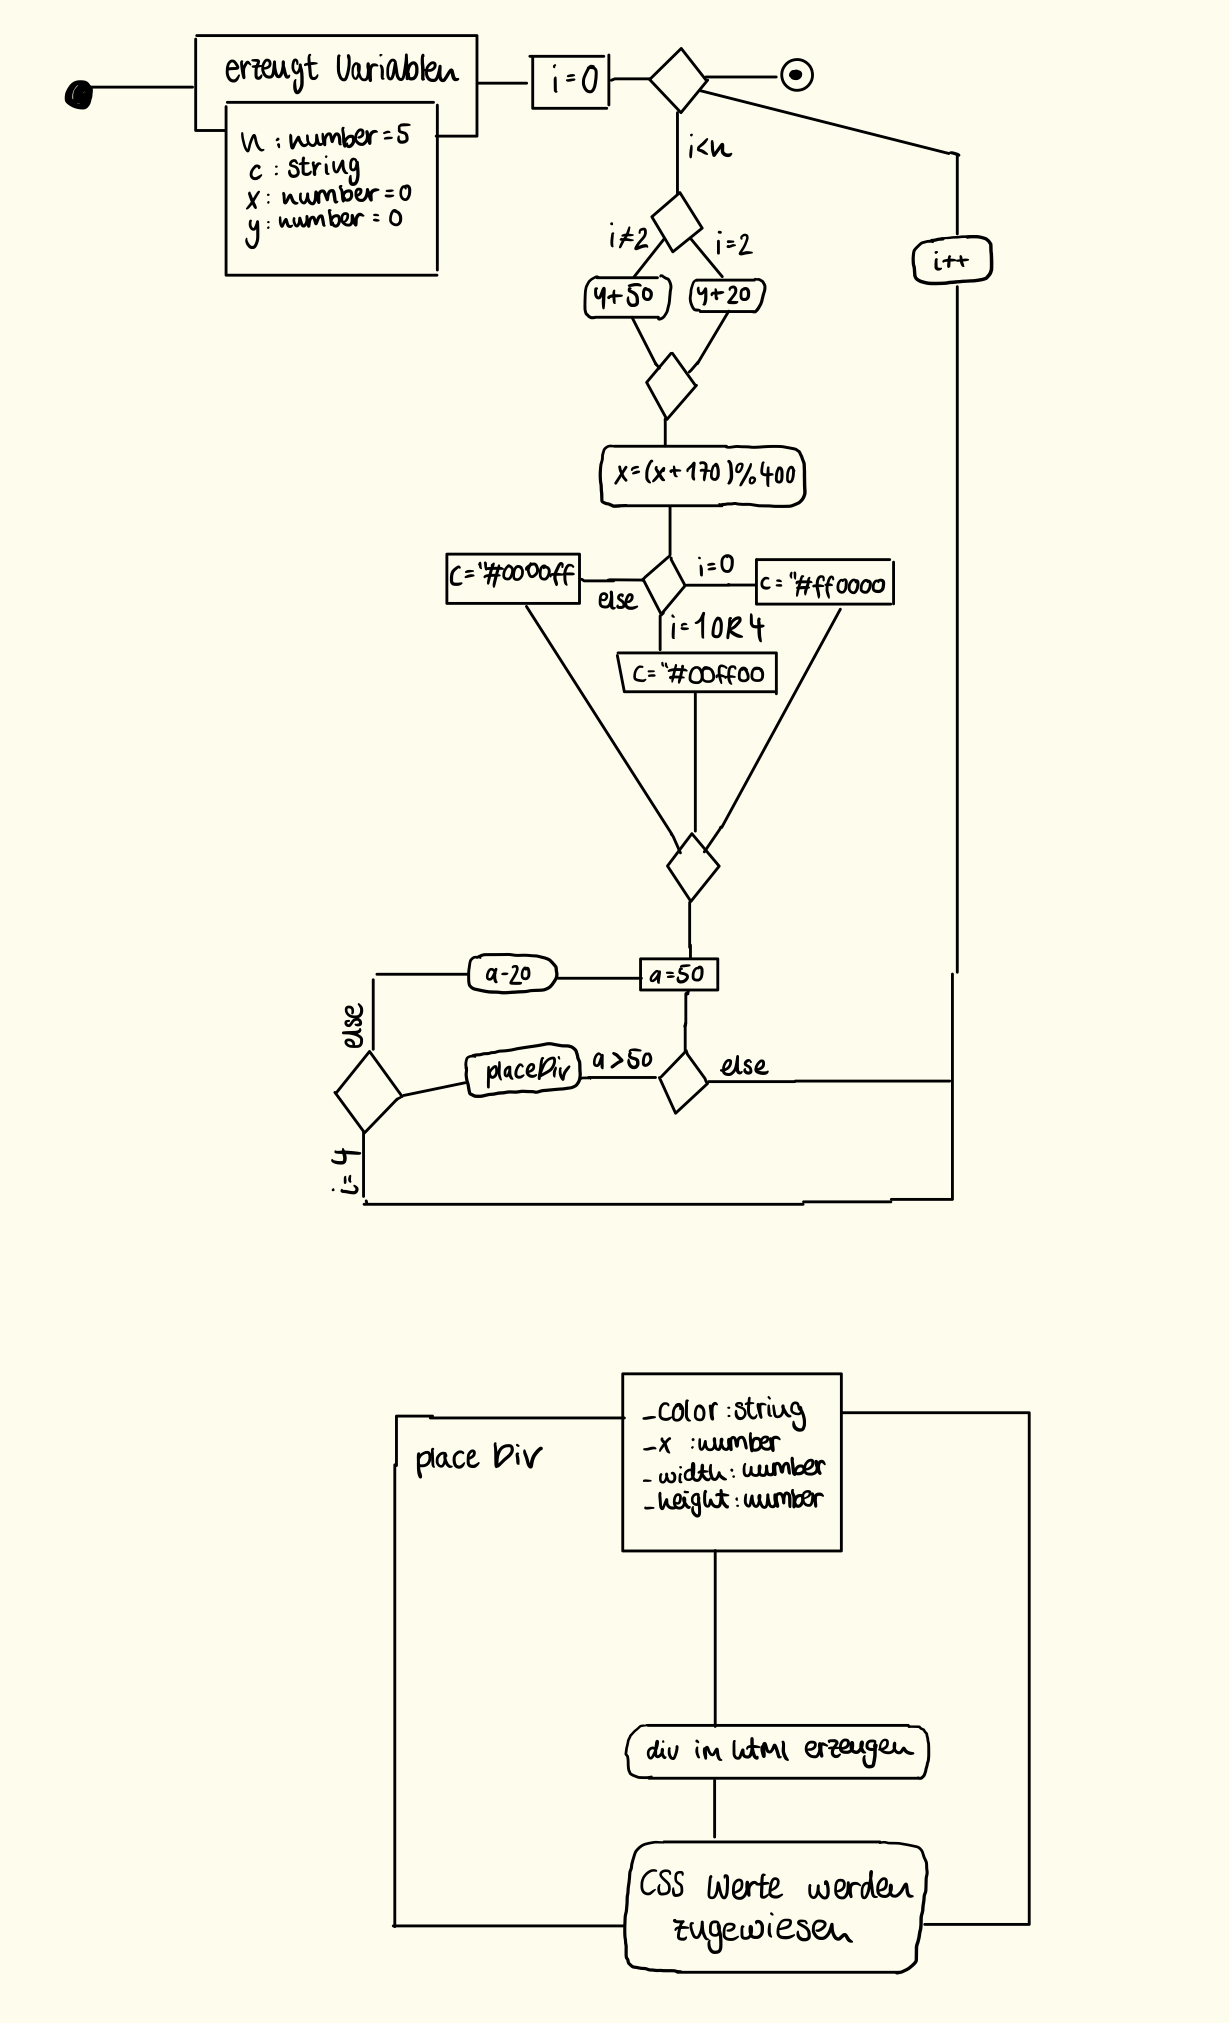 erzeugt Variablen
n : number = 5
c : string
x : number = 0
y : number = 0
i = 0
i<n
i≠2
i=2
y+50
y+20
i++
x=(x+170)%400
c="#0000ff
else
i=0
c="#ff0000
i=1 OR 4
c="#00ff00
a-20
a=50
else
placeDiv
a>50
else
i=4
place Div
-color : string
-x : number
-width : number
-height : number
div im html erzeugen
CSS Werte werden
zugewiesen